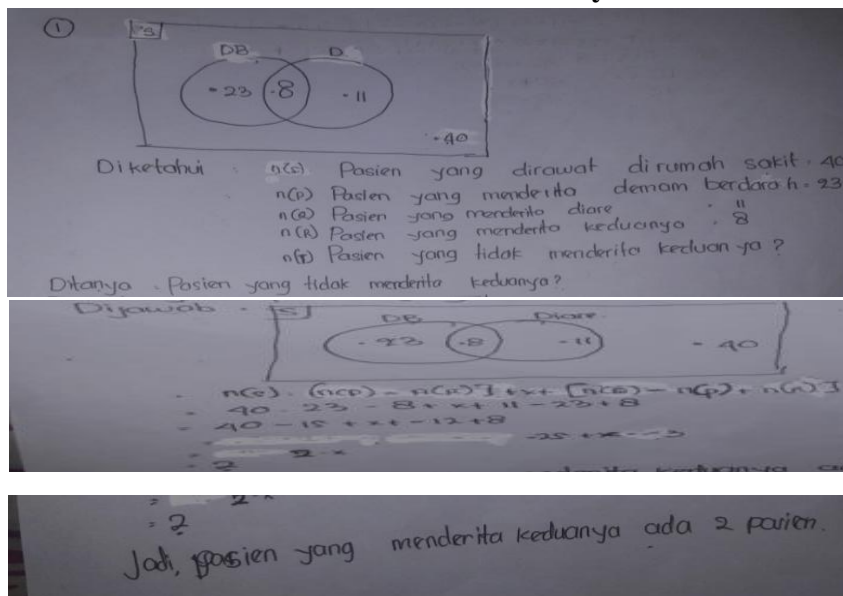 1
S
DB D
23 8 11
40
Diketahui : n(s) Pasien yang dirawat dirumah sakit . 40
n(P) Pasien yang menderita demam berdarah . 23
n(Q) Pasien yang menderita diare . 11
n(R) Pasien yang menderita keduanya . 8
n(T) Pasien yang tidak menderita keduanya ?
Ditanya . Pasien yang tidak menderita keduanya?
Dijawab - S
DB Diare
23 8 11 - 40
= 40 - 23 - 8 + x + 11 - 23 + 8
= 40 - 15 + x + -12 + 8
-25 + x - -3
= 2
= 2
Jadi, pasien yang menderita keduanya ada 2 pasien.